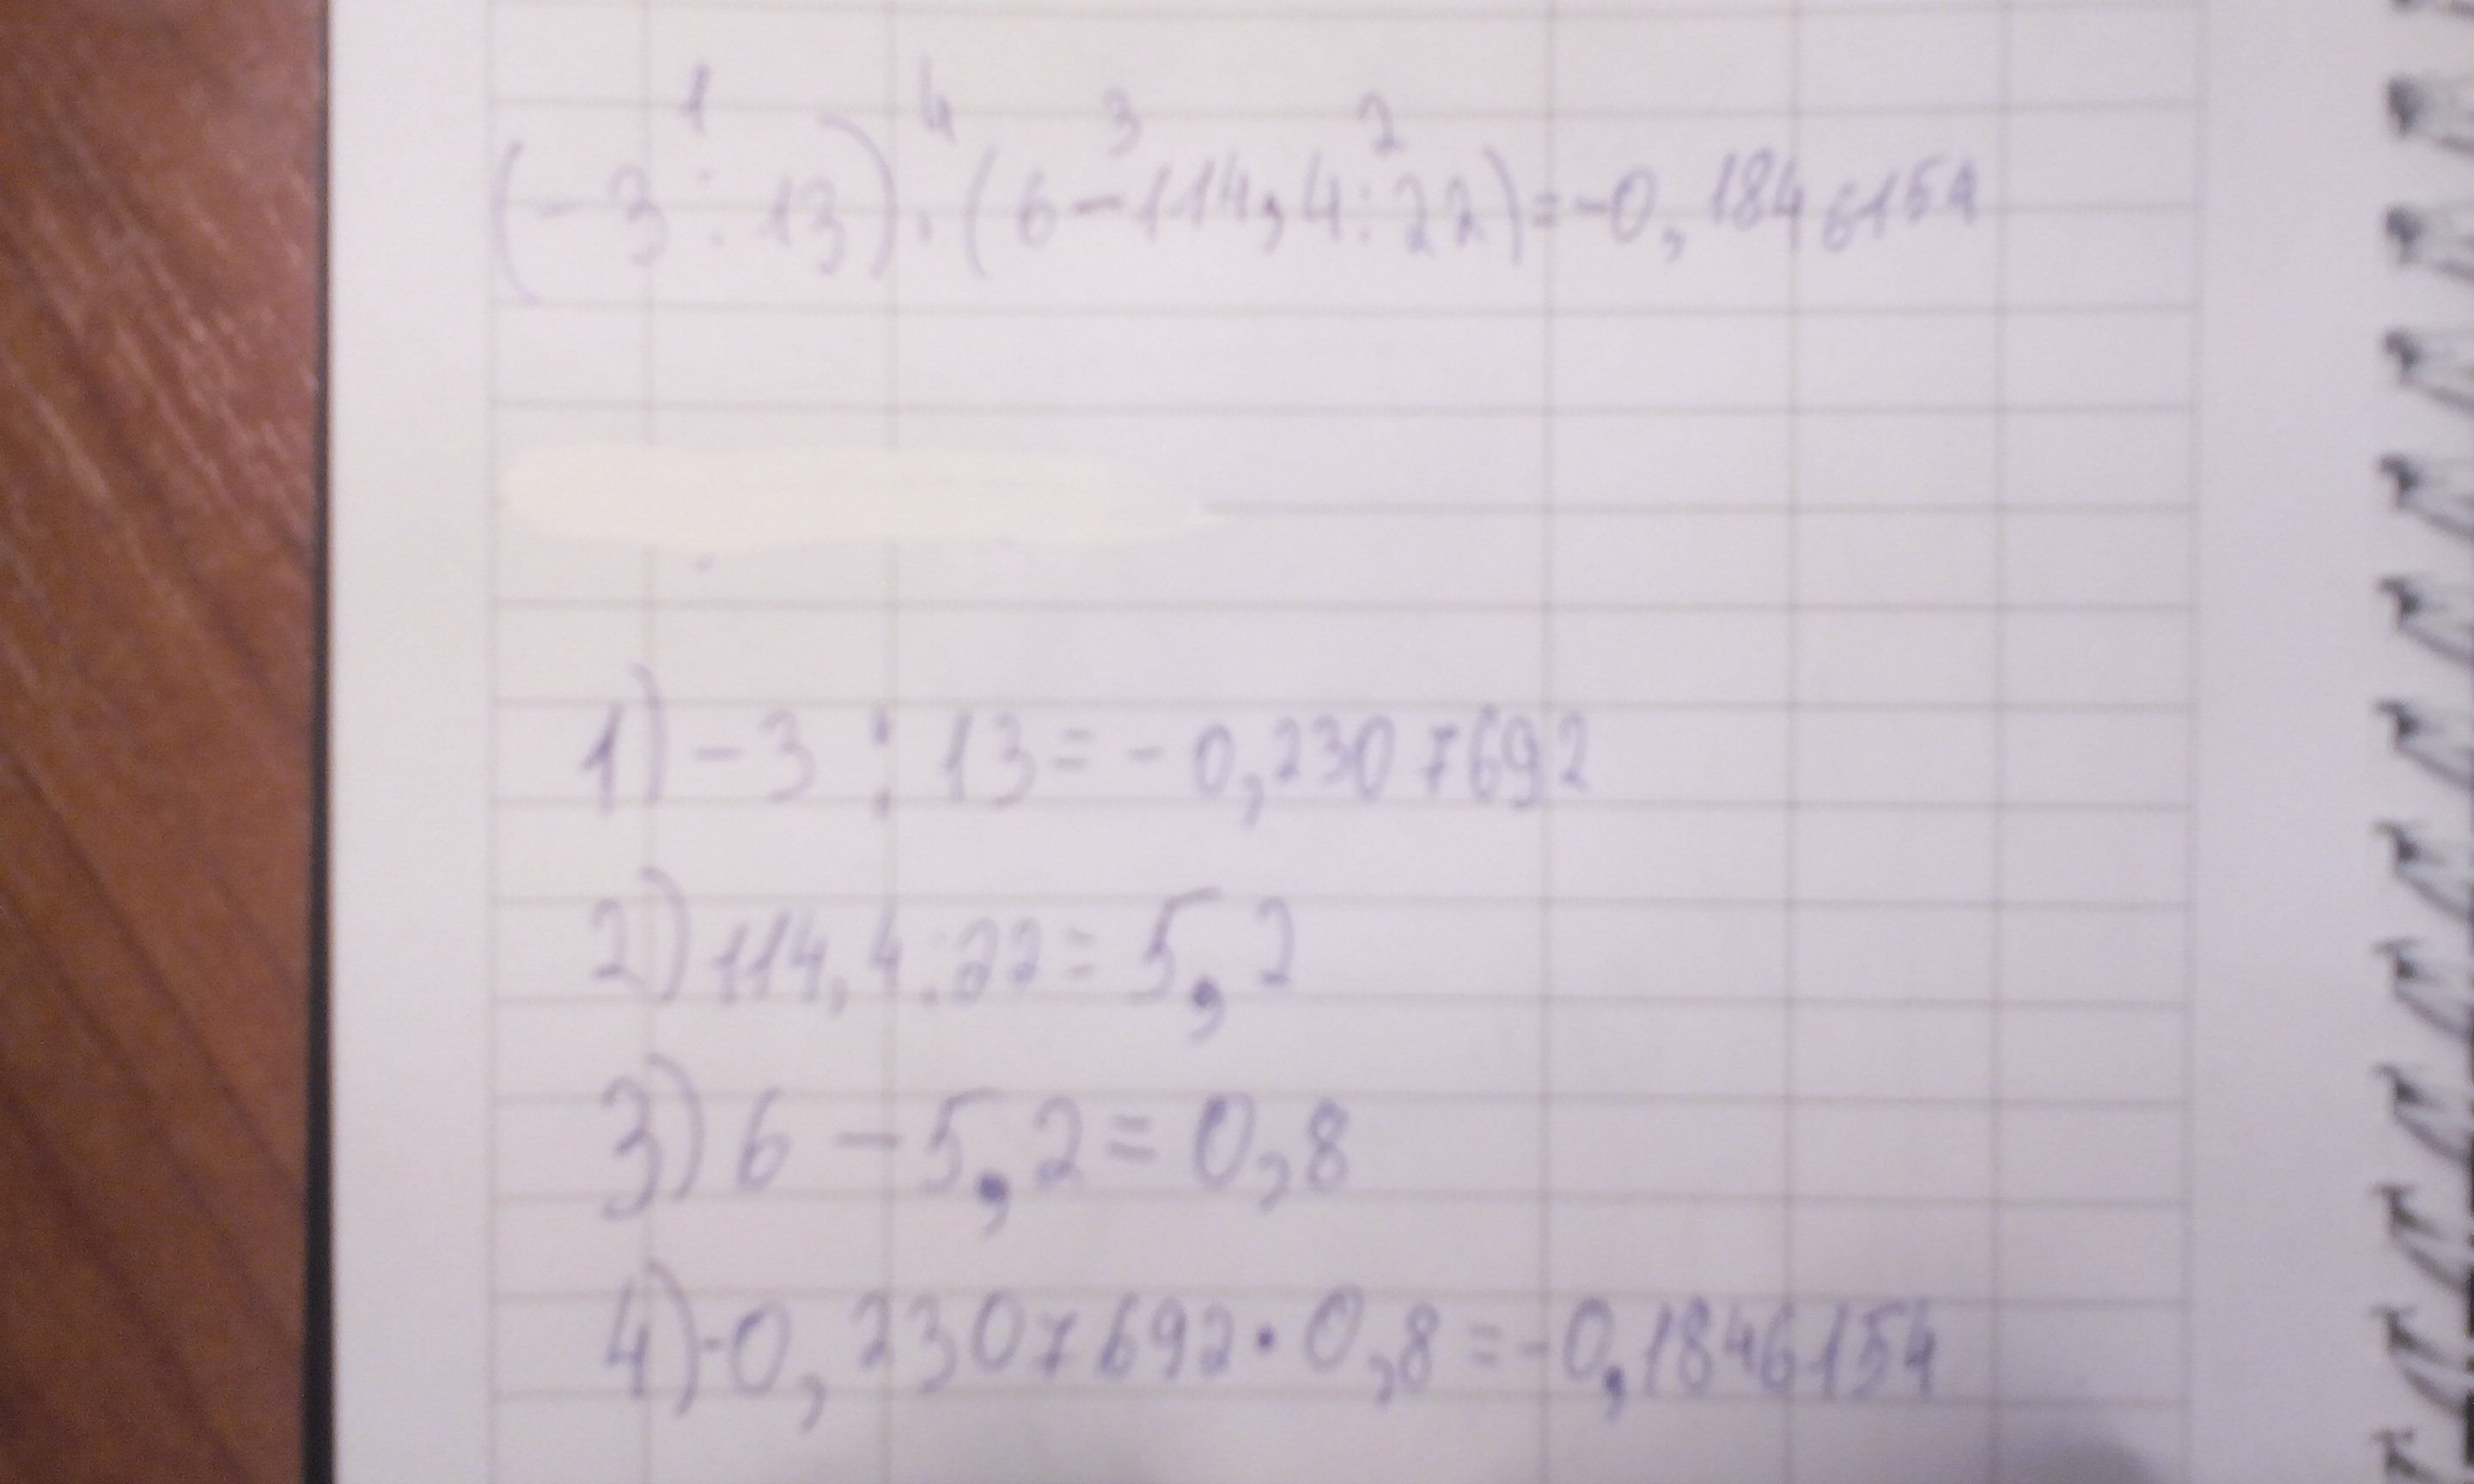 1 4 3 2
(-3 : 13) · (6-114,4:22)=-0,1846154
1) -3 : 13 = -0,2307692
2) 114,4:22 = 5,2
3) 6 - 5,2 = 0,8
4) -0,2307692 · 0,8 = -0,1846154